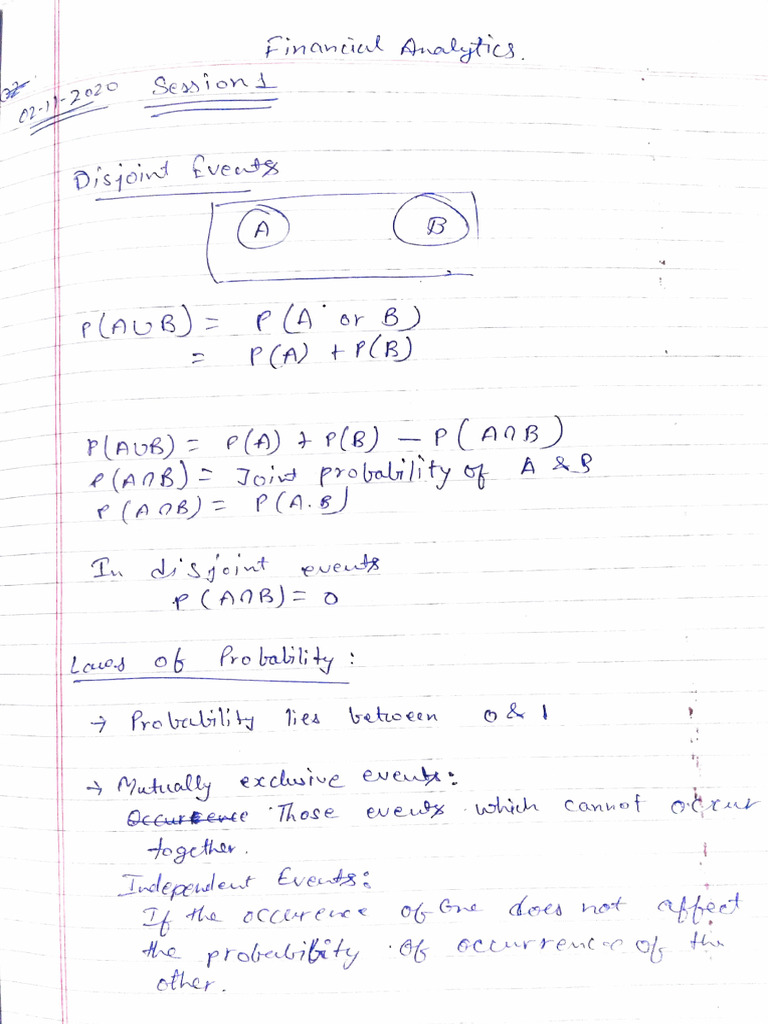 Financial Analytics.
02-11-2020 Session 1
Disjoint Events
A B
P(A∪B) = P(A or B)
= P(A) + P(B)
P(A∪B) = P(A) + P(B) - P(A∩B)
P(A∩B) = Joint probability of A & B
P(A∩B) = P(A.B)
In disjoint events
P(A∩B) = 0
Laws of Probability:
→ Probability lies between 0 & 1
→ Mutually exclusive events:
Occurrence Those events which cannot occur
together.
Independent Events:
If the occurence of one does not affect
the probability of occurrence of the
other.